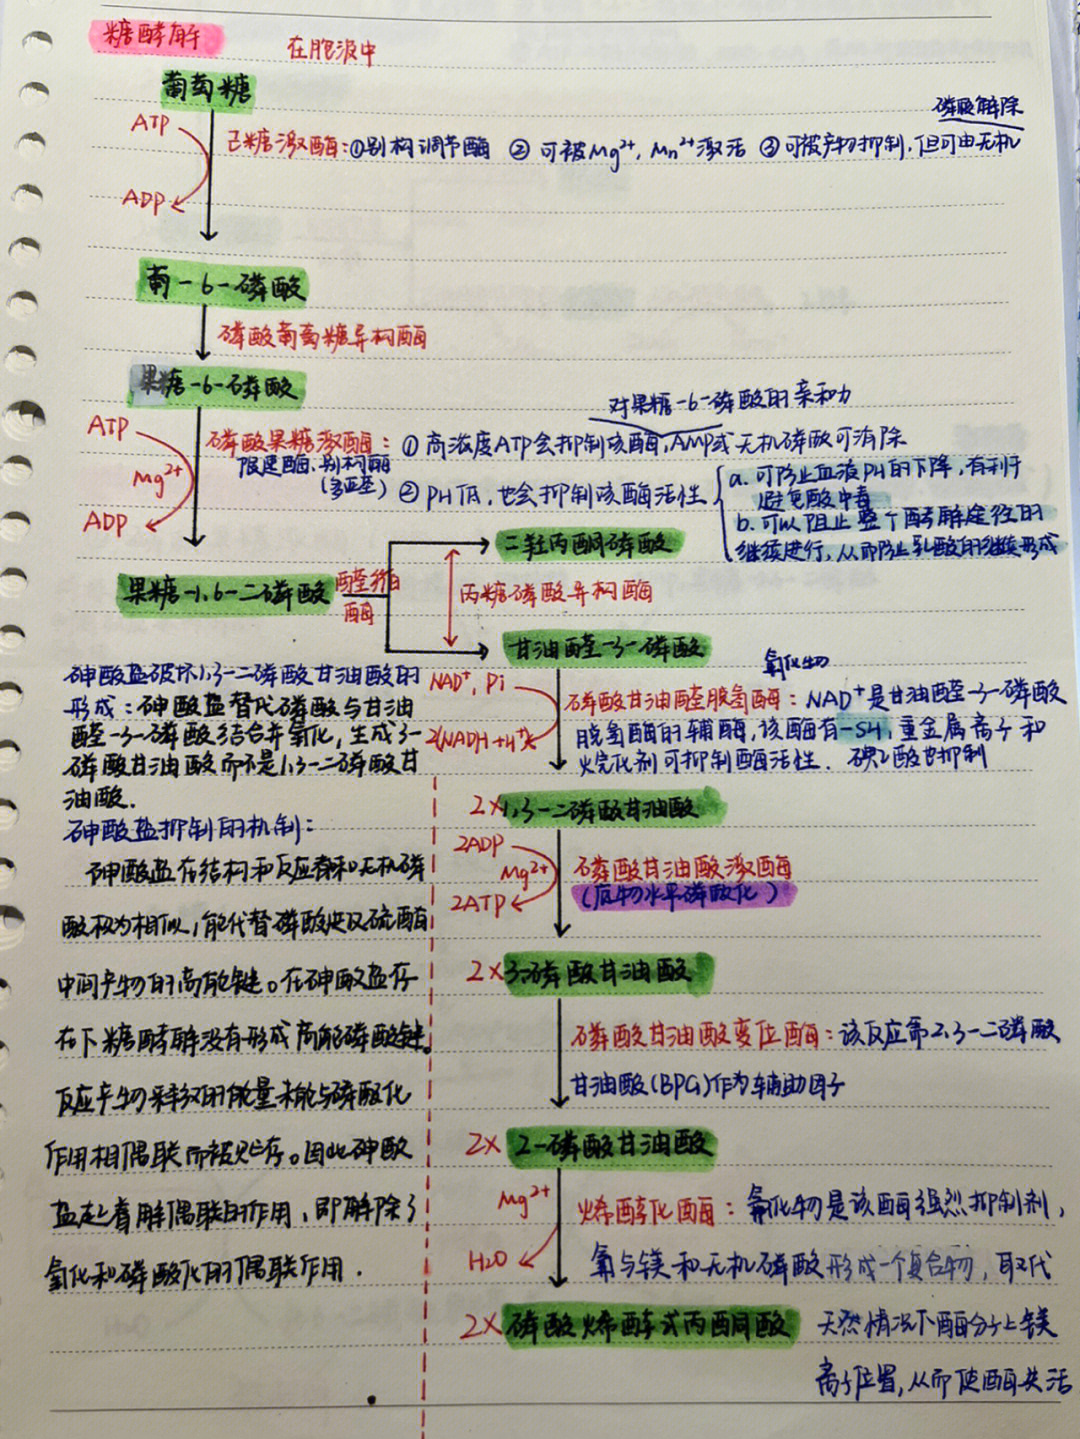 糖酵解
在胞液中
葡萄糖
磷酸解除
ATP
己糖激酶：①别构调节酶 ②可被Mg²⁺，Mn²⁺激活 ③可被产物抑制，但可由无机
ADP
葡-6-磷酸
磷酸葡萄糖异构酶
果糖-6-磷酸
对果糖-6-磷酸的亲和力
ATP
磷酸果糖激酶：①高浓度ATP会抑制该酶，AMP或无机磷酸可消除
限速酶、别构酶
(多亚基)
Mg²⁺
②PH低，也会抑制该酶活性
a.可防止血液PH的下降，有利于
避免酸中毒
b.可以阻止整个酵解途径的
继续进行，从而防止乳酸的继续形成
ADP
二羟丙酮磷酸
果糖-1,6-二磷酸
醛缩
酶
丙糖磷酸异构酶
甘油醛-3-磷酸
砷酸盐破坏1,3-二磷酸甘油酸的
形成：砷酸盐替代磷酸与甘油
醛-3-磷酸结合并氧化，生成3-
磷酸甘油酸而不是1,3-二磷酸甘
油酸.
NAD⁺, Pi
氧化物
磷酸甘油醛脱氢酶：NAD⁺是甘油醛-3-磷酸
2(NADH+H⁺)
脱氢酶的辅酶，该酶有-SH，重金属离子和
烷化剂可抑制酶活性. 碘乙酸也抑制
2×1,3-二磷酸甘油酸
砷酸盐抑制的机制：
砷酸盐在结构和反应着和无机磷
酸极为相似，能代替磷酸
中间产物的高能键。在砷酸盐存
在下糖酵解没有形成高能磷酸键.
反应产物释放的能量未能与磷酸化
作用相偶联而被贮存。因此砷酸
盐起着解偶联的作用，即解除了
氧化和磷酸化的偶联作用.
2ADP
Mg²⁺
磷酸甘油酸激酶
2ATP
(底物水平磷酸化)
2×3-磷酸甘油酸
磷酸甘油酸变位酶：该反应需2,3-二磷酸
甘油酸(BPG)作为辅助因子
2×2-磷酸甘油酸
Mg²⁺
烯醇化酶：氟化物是该酶强烈抑制剂，
H₂O
氟与镁和无机磷酸形成一个复合物，取代
2×磷酸烯醇式丙酮酸
天然情况下酶分子上镁
离子位置，从而使酶失活